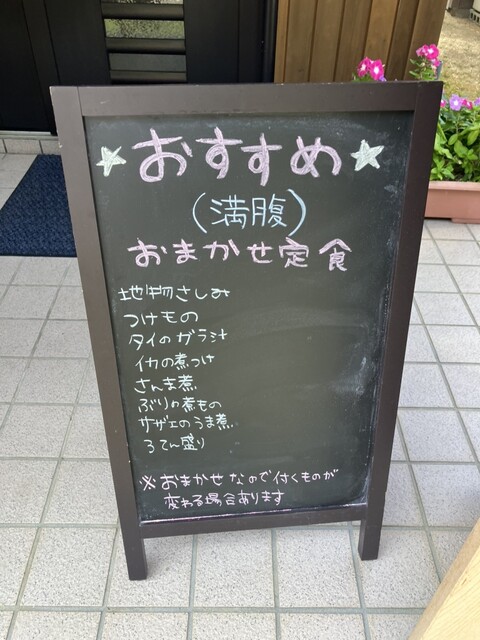 ☆おすすめ☆
(満腹)
おまかせ定食
地物さしみ
つけもの
タイのガラ汁
イカの煮つけ
さんま煮
ぶりの煮もの
サザエのうま煮
るてん盛り
※おまかせなので付くものが
変わる場合あります